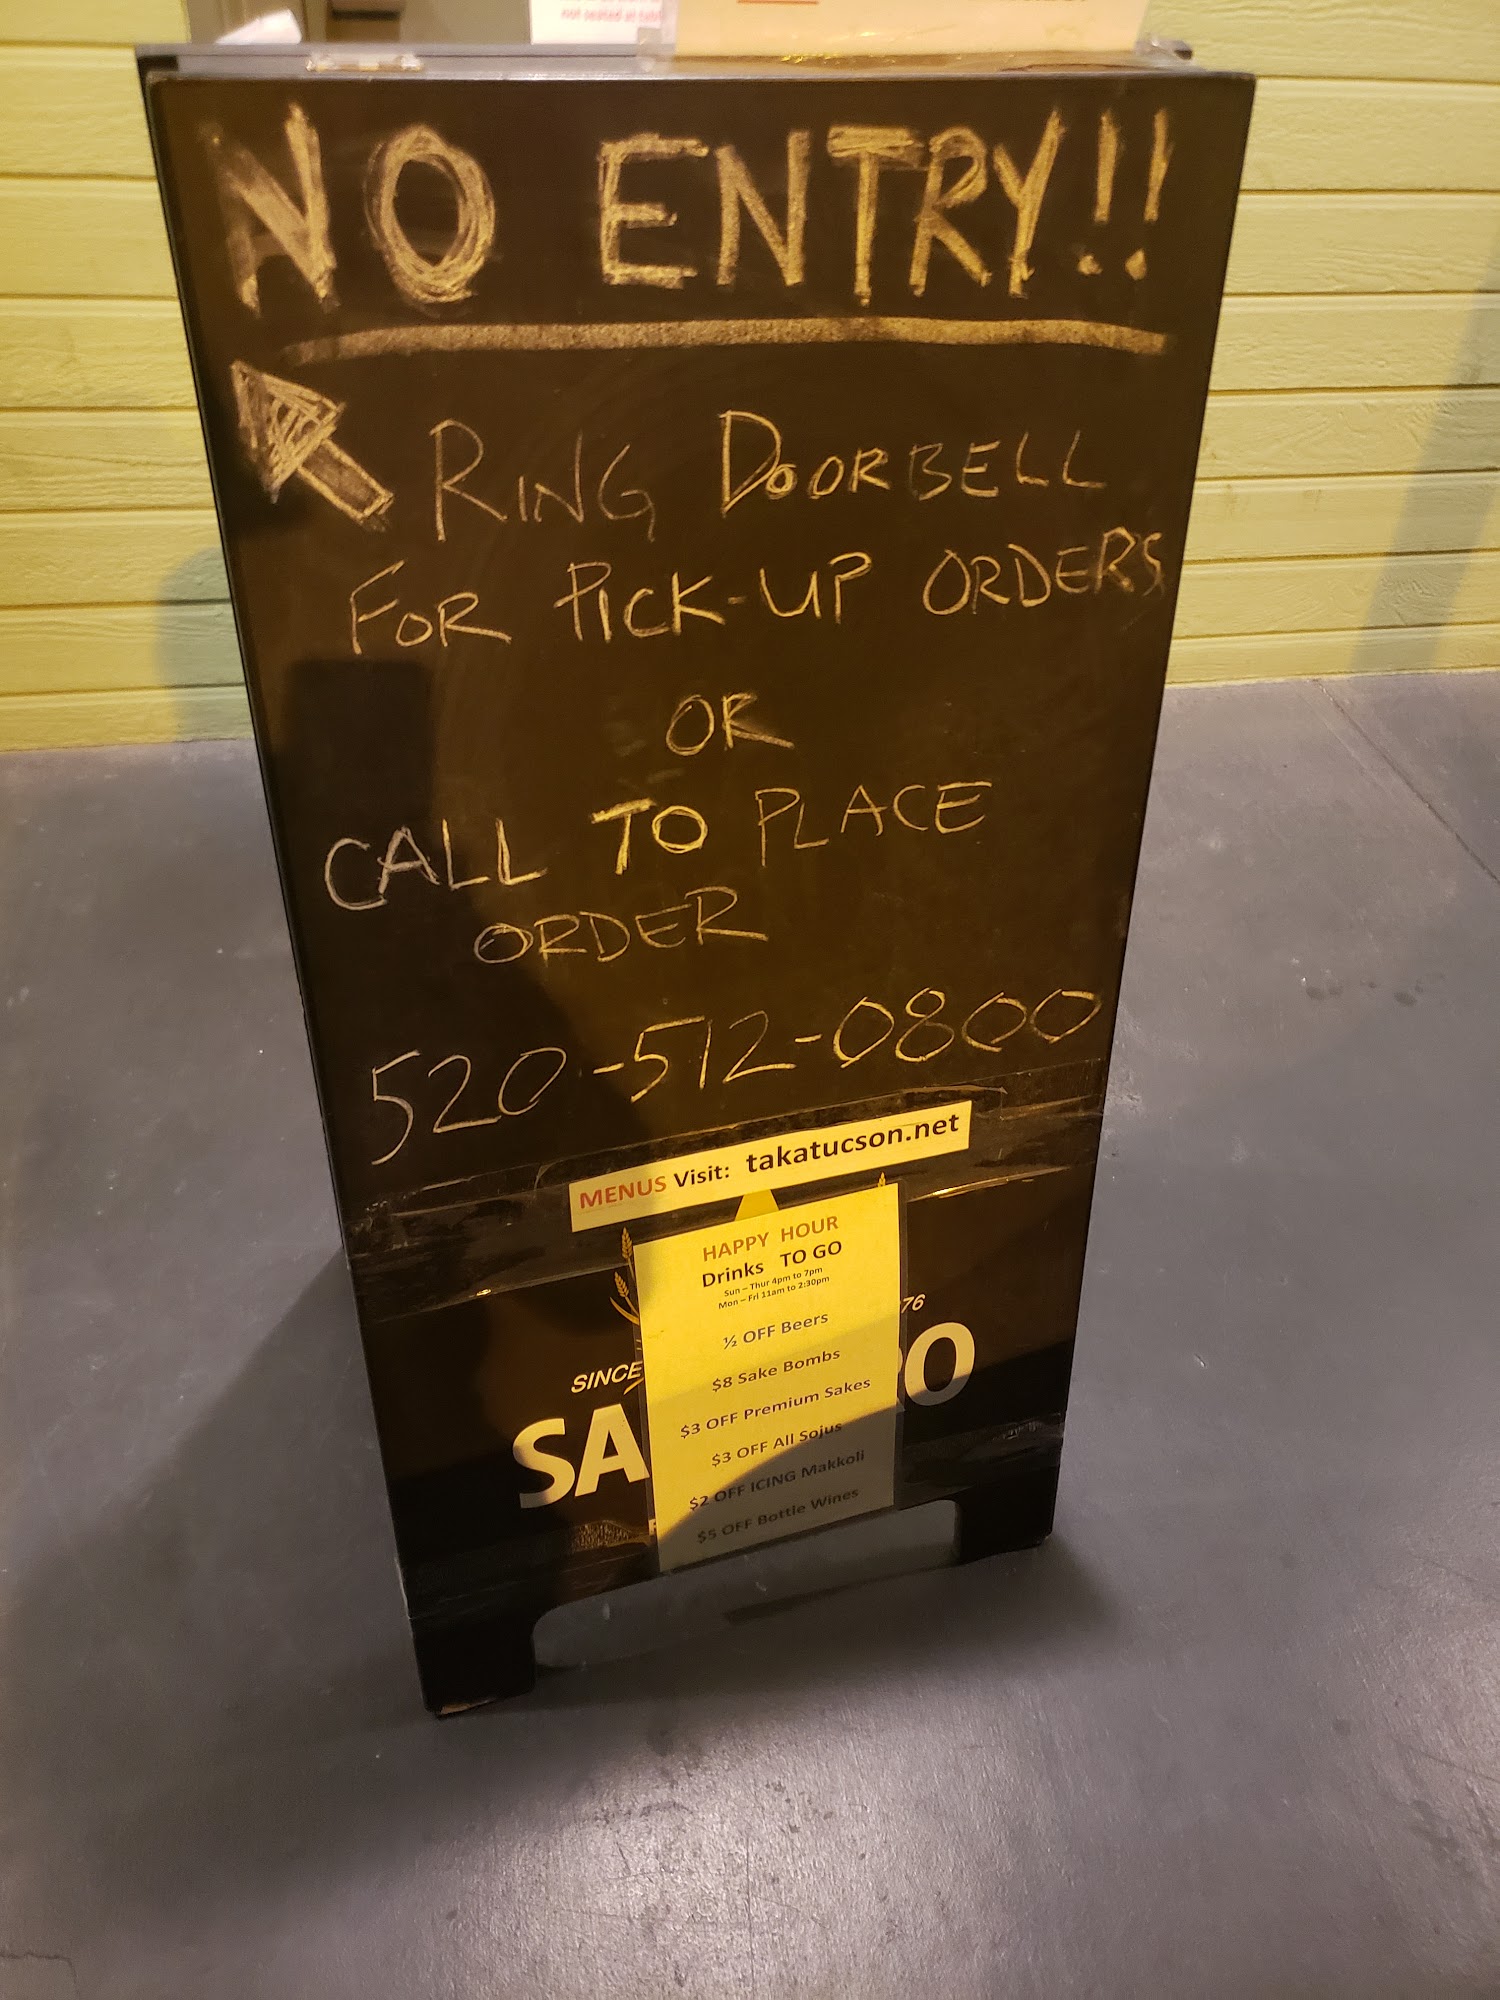 not seated at table
NO ENTRY!!
RING DOORBELL
FOR PICK-UP ORDERS
OR
CALL TO PLACE
ORDER
520-512-0800
MENUS Visit: takatucson.net
HAPPY HOUR
Drinks TO GO
Sun – Thur 4pm to 7pm
Mon – Fri 11am to 2:30pm
½ OFF Beers
$8 Sake Bombs
$3 OFF Premium Sakes
$3 OFF All Sojus
$2 OFF ICING Makkoli
$5 OFF Bottle Wines
SINCE 76
SA O